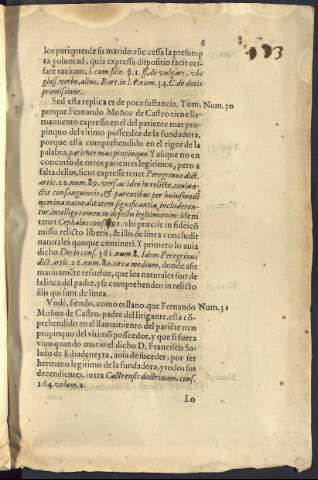 6
los pariẽtes de su marido, cõe cessa la presump
ta voluntad, quia expressa dispositio facit cessare
tacitam, l. cum filio. §. 1. ff. de vulgari, vbi
gloss. verbo, alius, Bart. in l. P. num. 34. C. de dotis
promissione.
Sed esta replica es de poca sustancia, Tùm, Num. 30
porque Fernando Muñoz de Castro tiene lla-
mamiento expresso en el del pariente mas pro-
pinquo del vltimo posseedor de la fundadora,
porque està comprehendido en el rigor de la
palabra, pariente mas propinquo. Y aũque no en
concurso de otros parientes legitimos, pero a
falta dellos, sicut expresse tenet Peregrinus dict.
artic. 22. num. 89. vers. ac idea in relicto, coniun-
ctis consanguineis, & parentibus per huiusmodi
nomina naturalitatem significantia, includeren-
tur, intelligo tamen in defectũ legitimorum: idem
tenet Cephalus cons. 92. vbi præcise in fideicõ
misso relicto liberis, & illis de linea concludit
naturales quoque contineri. Y primero lo auia
dicho Decio cons. 361. num. 8. Idem Peregrinus
dict. artic. 22. num. 80. circa medium, donde afir
matiuamẽte resuelue, que los naturales sõn de
la linea del padre, y se comprehenden in relicto
illis qui sunt de linea.
Vnde, siendo, como es llano, que Fernando Num. 31
Muñoz de Castro, padre del litigante, esta cõ-
prehendido en el llamamiento del pariẽte mas
propinquo del vltimõ posseedor, y que si fuera
viuo quando murio el dicho D. Francisco Sa-
lado de Ribadeneyra, auia de suceder, por ser
hermano legitimo de la fundadora, y todos sus
decendientes, iuxta Castrensis doctrinam, cons.
164. volum. 2.
Lo